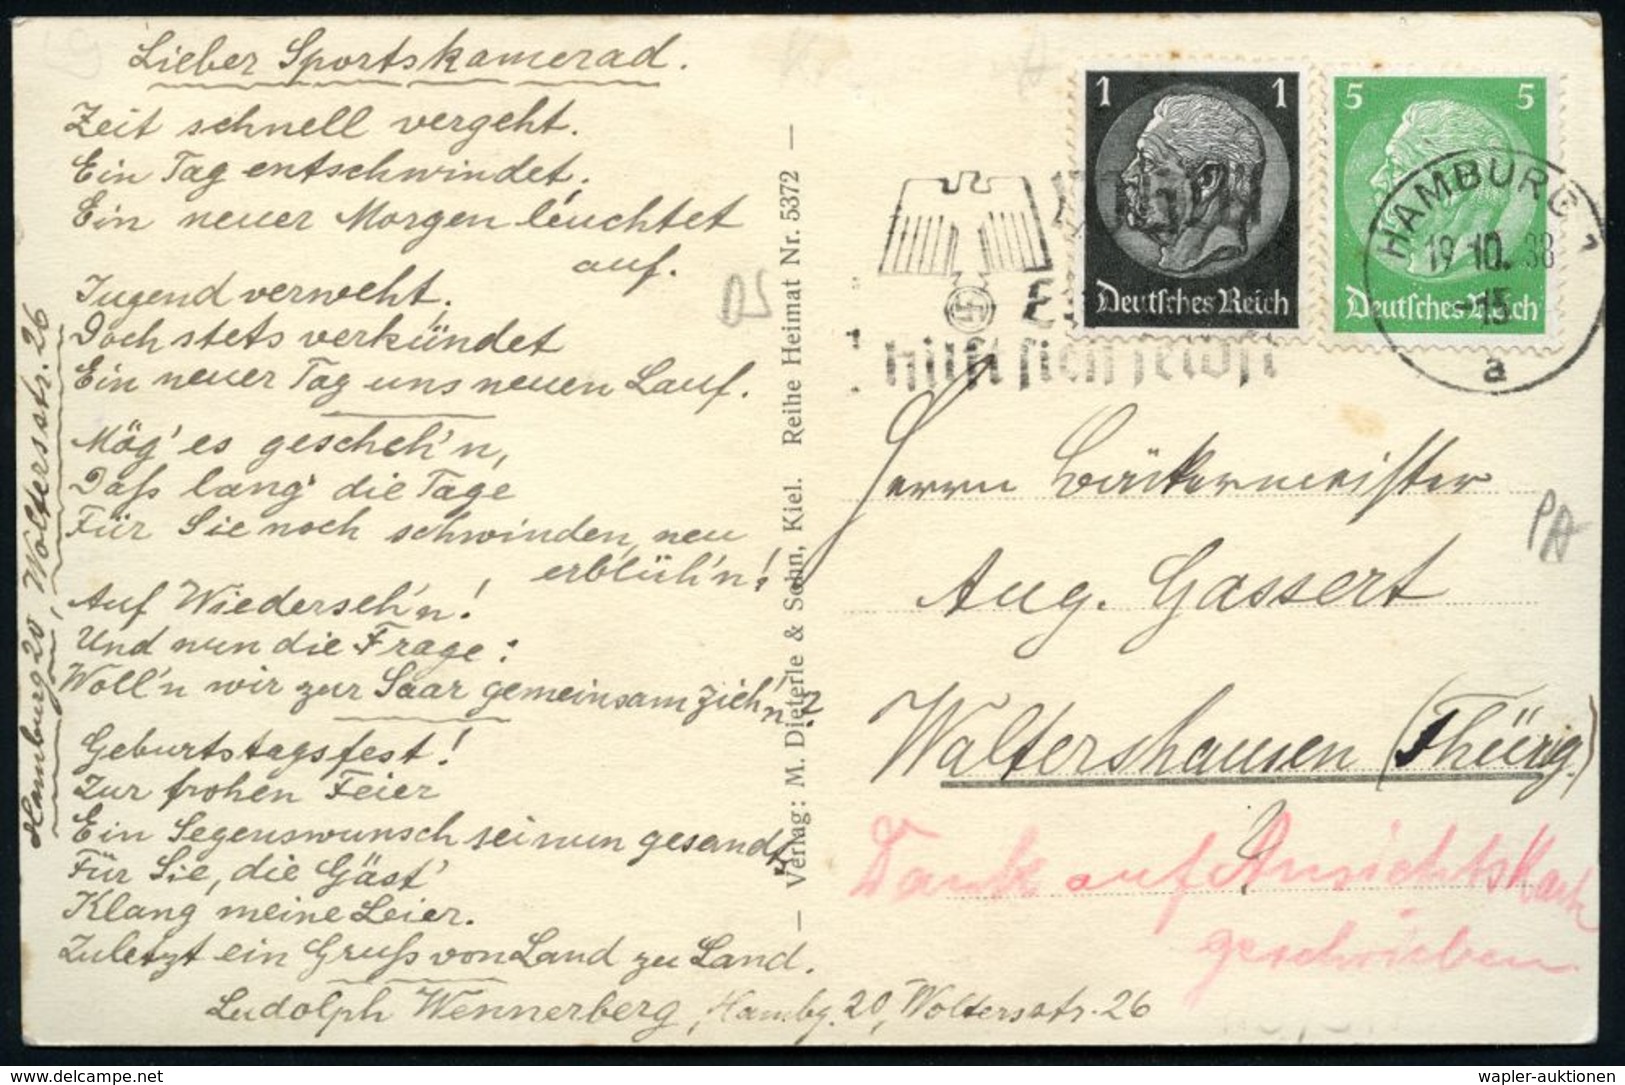 Lieber Sportskamerad.
Zeit schnell vergeht.
Ein Tag entschwindet.
Ein neuer Morgen leuchtet
auf.
Jugend verweht.
Doch stets verkündet
Ein neuer Tag uns neuen Lauf.
Mög' es gescheh'n,
Daß lang' die Tage
Für Sie noch schwinden, neu
erblüh'n!
Auf Wiederseh'n!
Und nun die Frage:
Woll'n wir zur Saar gemeinsam zieh'
n?
Geburtstagsfest!
Zur frohen Feier
Ein Segenswunsch sei nun gesandt.
Für Sie, die Gäst'
Klang meine Leier.
Zuletzt ein Gruß von Land zu Land.
Ludolph Wennerberg, Hambg. 20, Woltersstr. 26
Hamburg 20, Woltersstr. 26
Verlag: M. Dieterle & Sohn, Kiel. Reihe Heimat Nr. 5372
1 1
Deutsches Reich
5 5
Deutsches Reich
HAMBURG 1
19.10.38
15
a
hilft sich selbst
Herrn Bäckermeister
Aug. Gassert
Waltershausen (Thürig.)
Dank auf Ansichtskarte
geschrieben
DS
PA
wapler-auktionen
delcampe.net